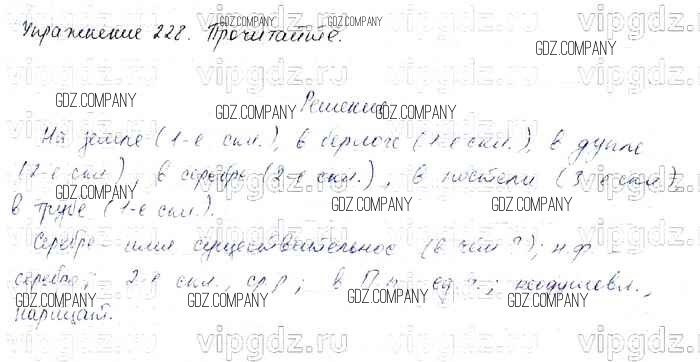 Упражнение 222. Прочитайте.
GDZ.COMPANY GDZ.COMPANY
vipgdz.ru vipgdz.ru vipgdz.ru
GDZ.COMPANY
GDZ.COMPANY GDZ.COMPANY GDZ.COMPANY
Решение
На земле (1-е скл.), в берлоге (1-е скл.), в дупле
(2-е скл.), в серебре (2-е скл.), в постели (3-е скл.),
в трубе (1-е скл.).
GDZ.COMPANY GDZ.COMPANY GDZ.COMPANY
Серебре - имя существительное (в чём?); н.ф. -
серебро; 2-е скл., ср.р.; в П.п., ед.ч.; неодушевл.,
нарицат.
GDZ.COMPANY GDZ.COMPANY GDZ.COMPANY
vipgdz.ru vipgdz.ru vipgdz.ru